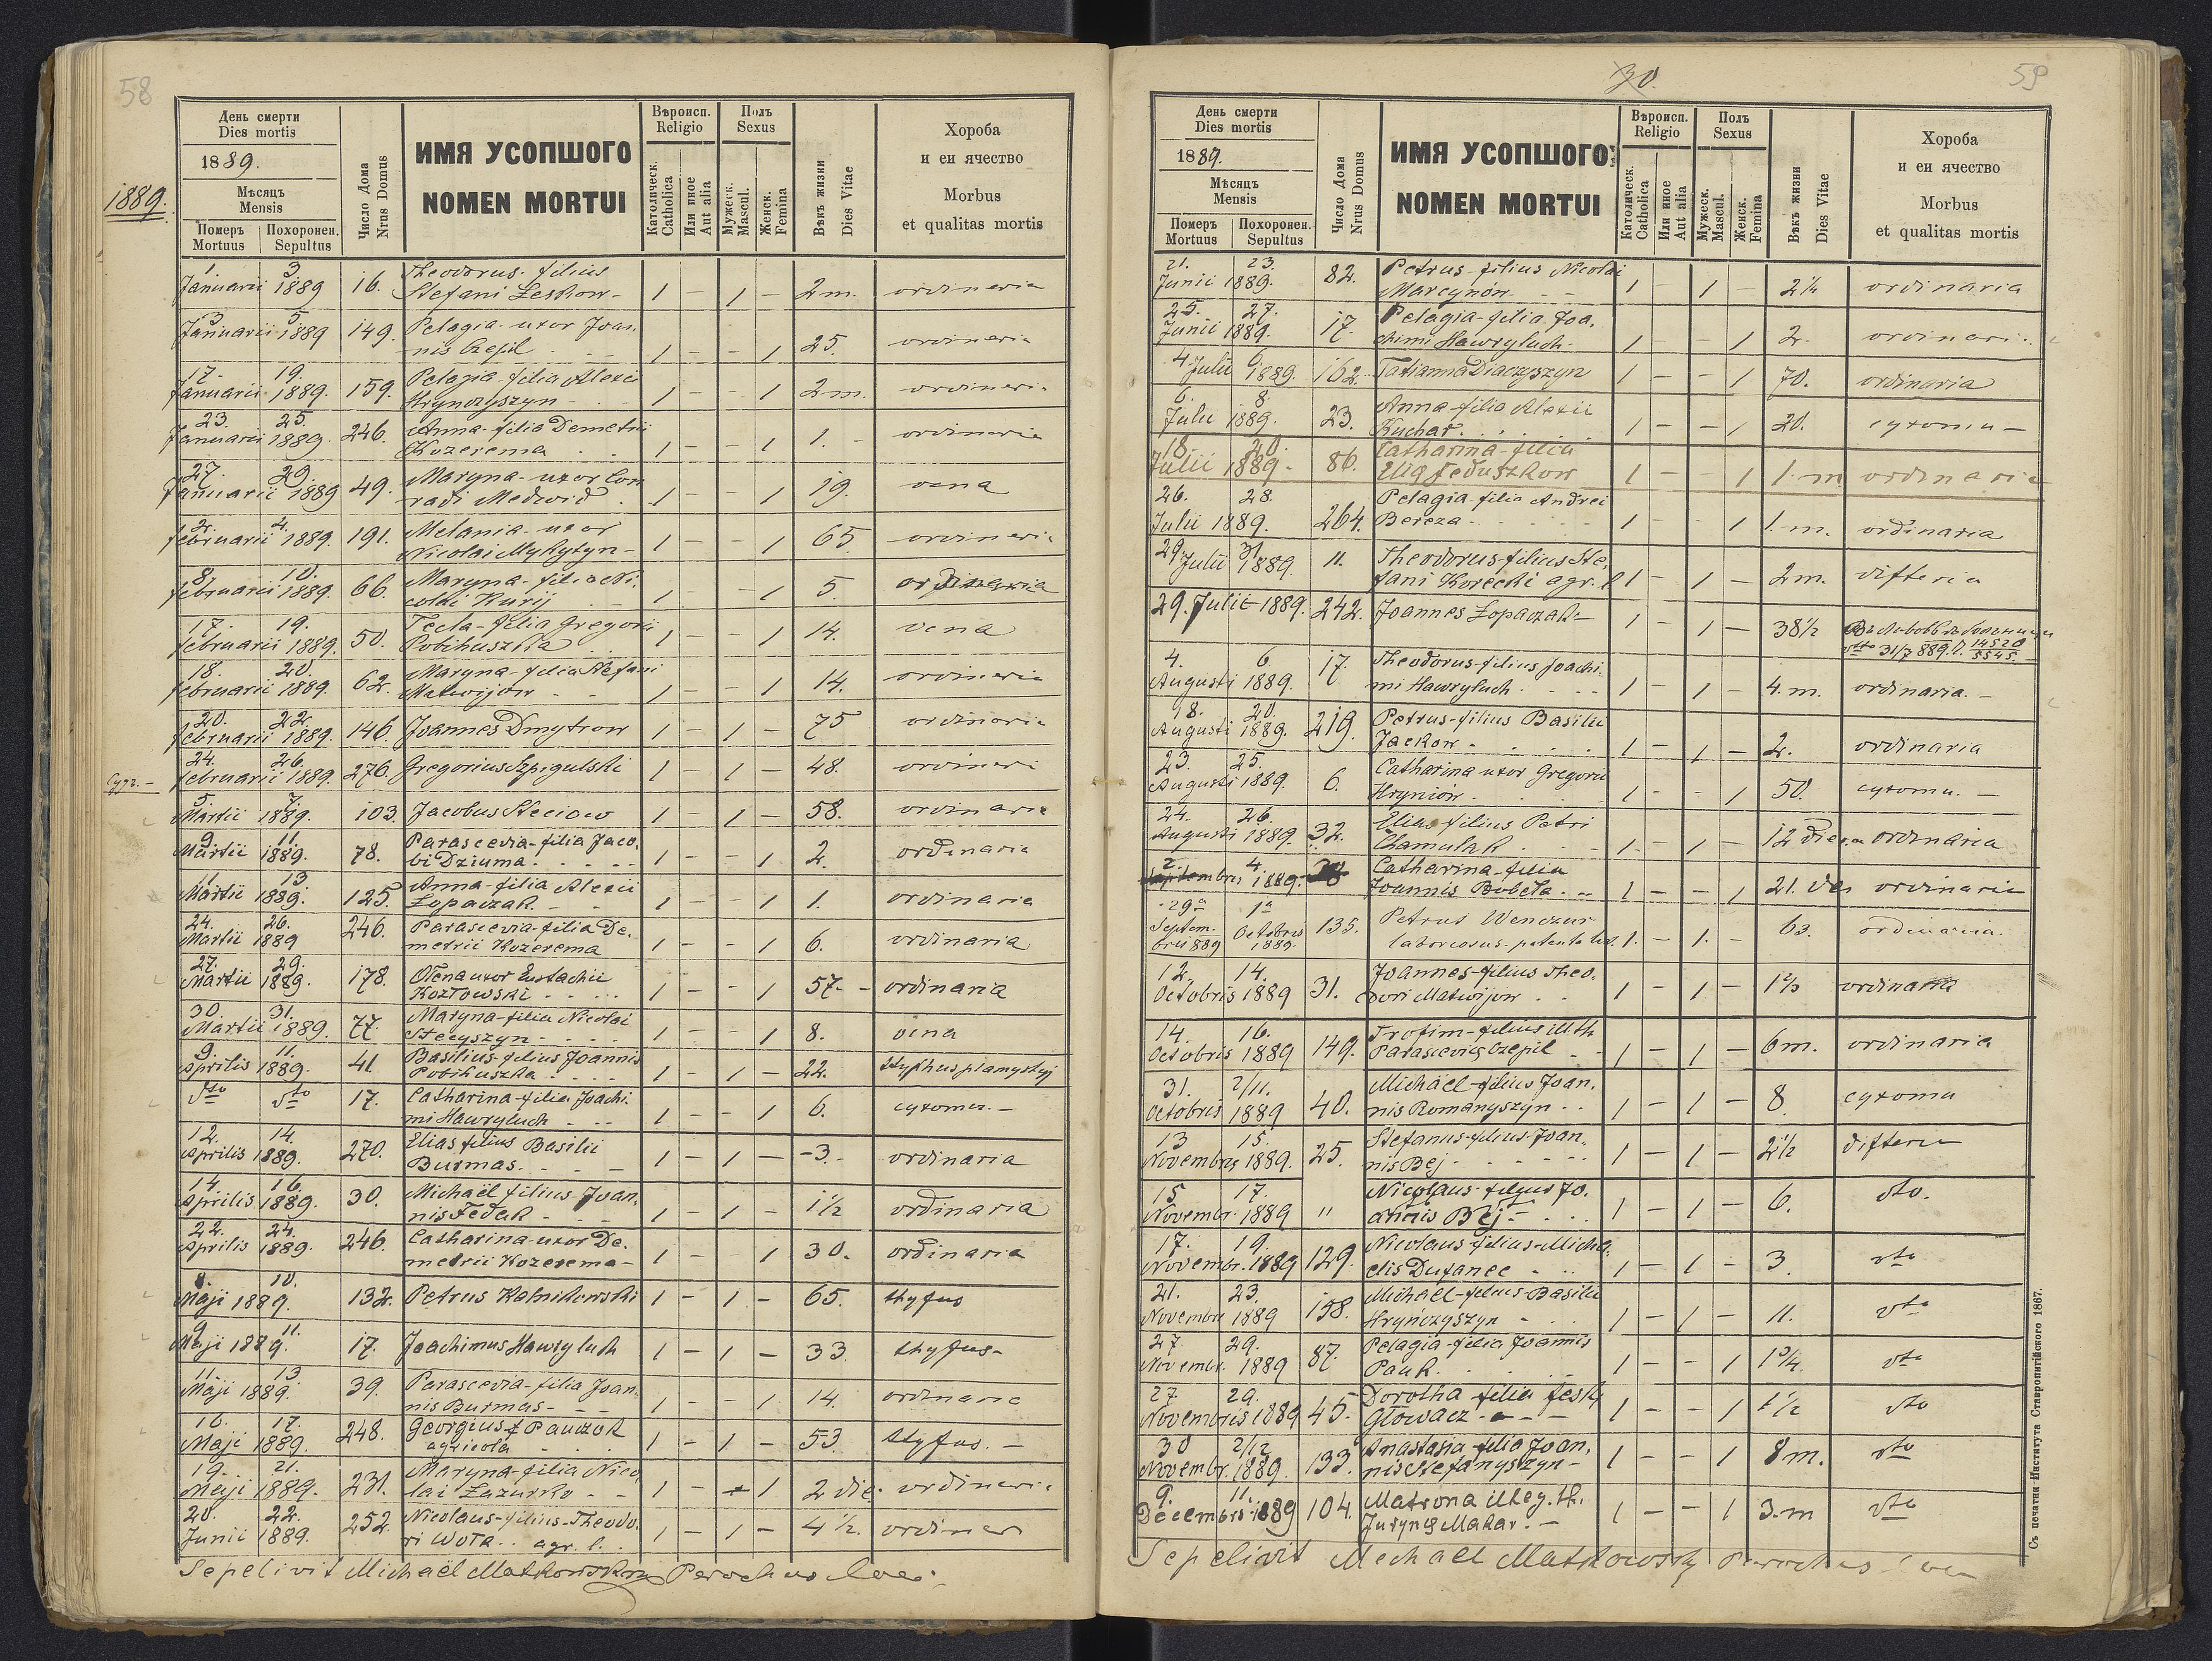 58
День смерти
Dies mortis
1889.
Мѣсяцъ
Mensis
Померъ
Mortuus
Похоронен.
Sepultus
Число Дома
Nrus Domus
ИМЯ УСОПШОГО
NOMEN MORTUI
Вѣроисп.
Religio
Католическ.
Catholica
Или иное
Aut alia
Полъ
Sexus
Мужеск.
Mascul.
Женск.
Femina
Вѣкъ жизни
Dies Vitae
Хороба
и еи ячество
Morbus
et qualitas mortis
1889.
1 3 Theodorus-filius
Januarii 1889 16. Stefani Leskow- 1 - 1 - 2 m. ordinaria
3 5 Pelagia-uxor Joan-
Januarii 1889 149. nis Czepil 1 - - 1 25. ordinaria
17. 19. Pelagia-filia Alexii
Januarii 1889. 159. Hrynczyszyn 1 - - 1 2 m. ordinaria
23. 25. Anna-filia Demetrii
Januarii 1889. 246. Kozerema 1 - - 1 1. ordinaria
27. 29. Maryna-uxor Con
Januarii 1889 49. radi Medwid 1 - - 1 19. vena
2. 4. Melania-uxor
februarii 1889. 191. Nicolai Mykytyn- 1 - - 1 65. ordinaria
8 10. Maryna-filia Ni-
februarii 1889. 66. colai Kurij 1 - - 1 5. ordinaria
17. 19. Tecla-filia Gregorii
februarii 1889. 50. Pobihuszka 1 - - 1 14. vena
18. 20. Maryna-filia Stefani
februarii 1889. 62. Matwijow 1 - - 1 14. ordinaria
20. 22.
februarii 1889. 146. Joannes Dmytrow 1 - 1 - 75 ordinaria
24. 26.
februarii 1889. 276. Gregorius Szpigulski 1 - 1 - 48. ordinari
5. 7.
Martii 1889. 103. Jacobus Steciow 1 - 1 - 58. ordinaria
9 11. Parascevia-filia Jaco-
Martii 1889. 78. bi Dziuma 1 - - 1 2. ordinaria
11 13 Anna-filia Alexii
Martii 1889. 125. Łopaczak 1 - - 1 1. ordinaria
24. 26. Parascevia-filia De-
Martii 1889 246. metrii Kozerema 1 - - 1 6. ordinaria
27. 29. Olena uxor Eustachii
Martii 1889. 178. Kozłowski 1 - - 1 57. ordinaria
30. 31. Maryna-filia Nicolai
Martii 1889. 77. Stecyszyn 1 - - 1 8. vena
9. 11. Basilius-filius Joannis
Aprilis 1889. 41. Pobihuszka 1 - 1 - 22. typhus plamystyj
dto dto 17. Catharina-filia Joachi-
mi Hawryluch 1 - - 1 6.
12. 14. Elias filius Basilii
Aprilis 1889. 270. Burmas 1 - 1 - 3. ordinaria
14. 16. Michaël filius Joan-
Aprilis 1889. 30. nis Fedak 1 - 1 - 1½ ordinaria
22. 24. Catharina-uxor De-
Aprilis 1889. 246. metrii Kozerema- 1 - 1 30. ordinaria
8. 10.
Maji 1889. 132. Petrus Kalnikowski 1 - 1 - 65. thyfus
9 11.
Maji 1889. 17. Joachimus Hawryluch 1 - 1 - 33. thyfus-
11. 13 Parascevia-filia Joan-
Maji 1889. 39. nis Burmas 1 - - 1 14. ordinaria
16. 17. Georgius Pauczok
Maji 1889. 248. agricola 1 - 1 - 53. thyfus. -
19. 21. Maryna-filia Nico
Maji 1889. 231. lai Łazurko 1 - 1 2 die. ordinaria
20. 22. Nicolaus-filius-Theodo-
Junii 1889. 252. ri Woła.. agr. l. 1 - 1 - 4½. ordinar
Sepelivit Michaël Matkowski Parochus loci
30.
59
День смерти
Dies mortis
1889.
Мѣсяцъ
Mensis
Померъ
Mortuus
Похоронен.
Sepultus
Число Дома
Nrus Domus
ИМЯ УСОПШОГО
NOMEN MORTUI
Вѣроисп.
Religio
Католическ.
Catholica
Или иное
Aut alia
Полъ
Sexus
Мужеск.
Mascul.
Женск.
Femina
Вѣкъ жизни
Dies Vitae
Хороба
и еи ячество
Morbus
et qualitas mortis
21. 23. Petrus-filius Nicolai
Junii 1889. 82. Marcynów 1 - 1 - ordinaria
25. 27. Pelagia-filia Joa-
Junii 1889. 17. chimi Hawryluch- 1 - - 1 2. ordinari
4 6
Julii 1889. 162. Tatianna Diaczyszyn 1 - - 1 70. ordinaria
6. 8. Anna-filia Alexii
Julii 1889. 23. Kuchar 1 - - 1 20.
18. 20. Catharina-filia
Julii 1889. 86. Eliae Feduszkow 1 - - 1 1. m ordinaria
26. 28. Pelagia-filia Andrei
Julii 1889. 264. Bereza 1 - - 1 1. m. ordinaria
29 31 Theodorus-filius Ste-
Julii 1889. 11. fani Korecki agr. l 1 - 1 - 2 m. difteria
29. Julii-1889. 242. Joannes Łopaczak- 1 - 1 - 38½ Въ Львовѣ въ больници
dto 31/7 889. 14520 5545.
4. 6. Theodorus-filius Joachi-
Augusti 1889. 17. mi Hawryluch 1 - 1 - 4. m. ordinaria. -
18. 20. Petrus-filius Basilii
Augusti 1889. 219. Jackow 1 - 1 - 2. ordinaria
23. 25. Catharina uxor Gregorii
Augusti 1889. 6. Hryniów 1 - - 1 50.
24. 26. Elias filius Petri
Augusti 1889. 32. Chamulak 1. - 1 - 12 ordinaria
2. 4. Catharina-filia
Septembris 1889. Joannis Bobeła 1 - - 1 21. ordinaria
29a 1a
Septem- Octobris 135. Petrus Wenczur
bris 889 1889. laboriosus 1. - 1. - 63. ordinaria.
12. 14. Joannes-filius Theo-
Octobris 1889 31. dori Matwijow 1 - 1 - ordinaria
14. 16. Trofim-filius ill. th
Octobris 1889 149. Parasceviae Czepil 1 - 1 - 6 m. ordinaria
31. 2/11. Michaël-filius Joan-
Octobris 1889 40. nis Romanyszyn 1 - 1 - 8.
13 15. Stefanus-filius-Joan-
Novembris 1889. 25. nis Bej 1 - 1 - 2½ difteria
15 17. Nicolaus-filius Jo-
Novembr. 1889 " annis Bej 1 - 1 - 6. dto.
17. 19. Nicolaus-filius-Micha-
Novembr. 1889 129. elis Dufanec 1 - 1 - 3. dto
21. 23. Michaël-filius-Basilii
Novembr 1889 158. Hryńczyszyn 1 - 1 - 11. dto
27. 29. Pelagia-filia Joannis
Novembr. 1889 87. Pauk 1 - - 1 1¾. dto
27 29. Dorotha filia
Novembris 1889 45. Głowacz 1 - - 1 1½ dto
30 2/12 Anastasia-filia Joan-
Novembr. 1889. 133. nis Stefanyszyn- 1 - - 1 8 m. dto
9. 11. Matrona illeg. th.
Decembris 1889 104. Makar. - 1 - - 1 3. m dto
Sepelivit Michaël Matkowsky Parochus
Съ печатни Института Ставропигійского 1867.